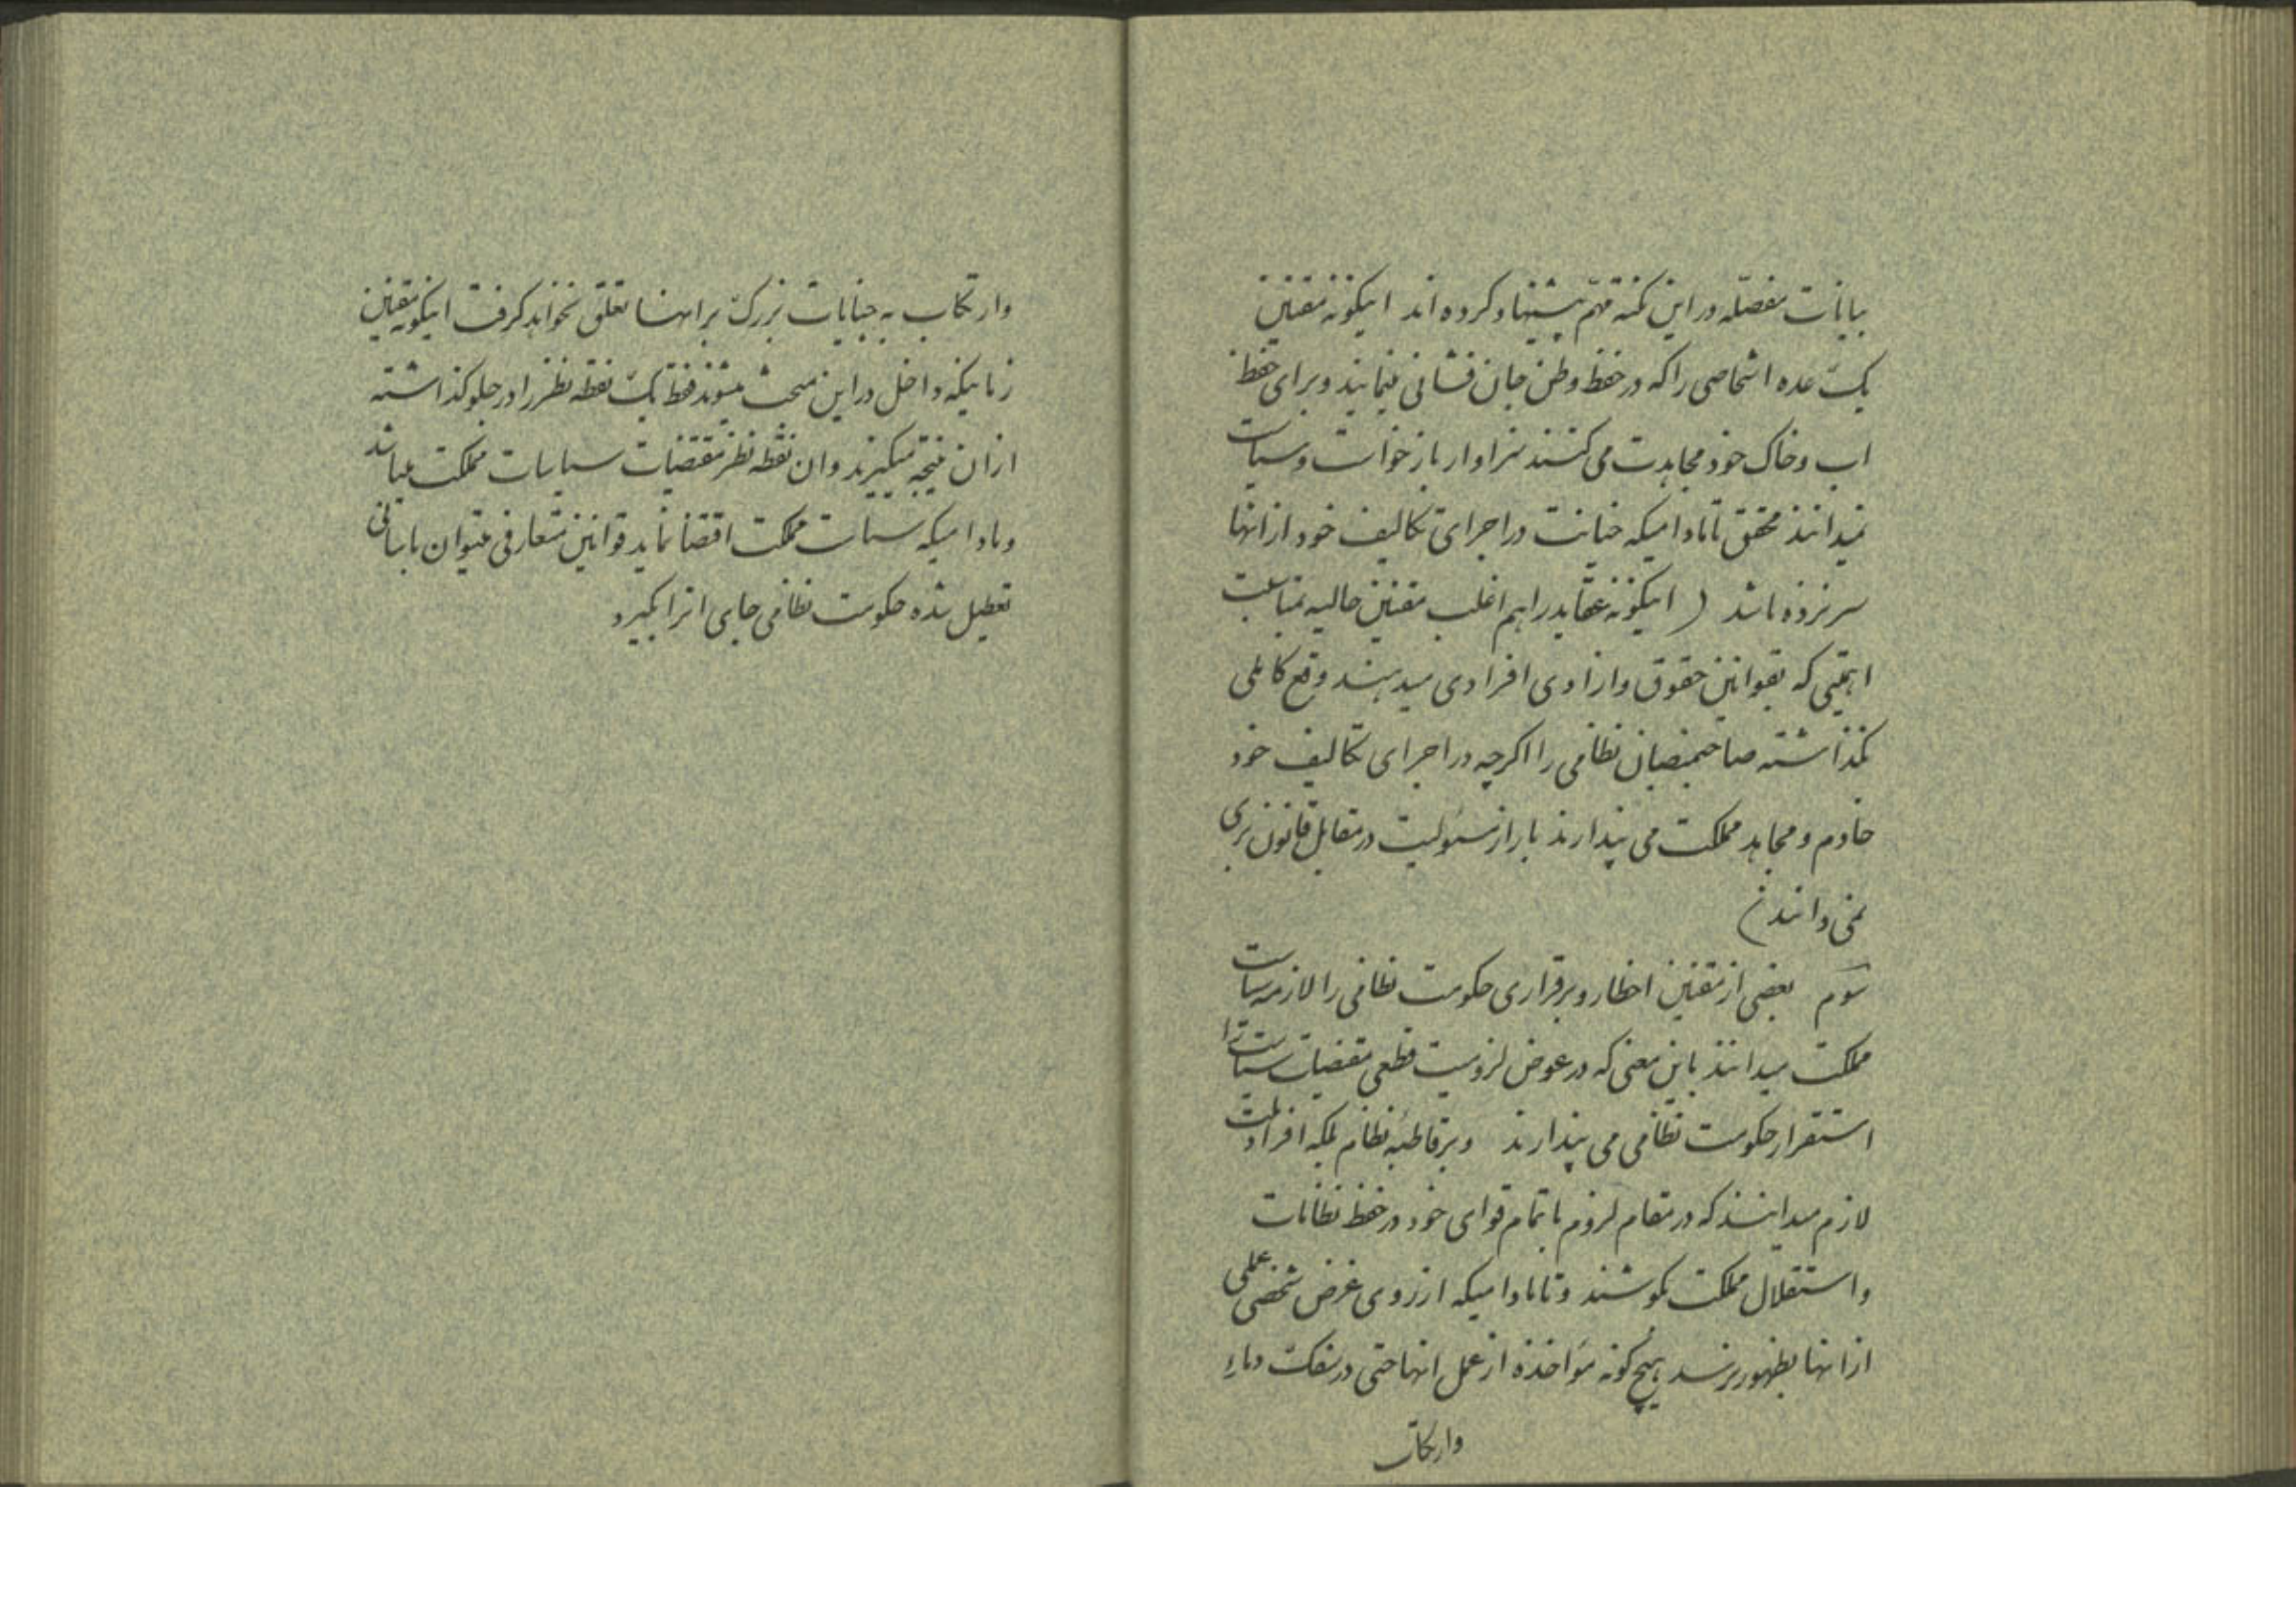 بیانات مفصّله در این نکته مهمّ پیشنهاد کرده اند اینگونه مقننین
یک عده اشخاصی را که در حفظ وطن جان فشانی مینمایند و برای حفظ
اب و خاک خود مجاهدت می کنند سزاوار بازخواست و سیاست
نمیدانند محقق تا مادامیکه خیانت در اجرای تکالیف خود از انها
سر نزده باشد ( اینگونه عقاید را هم اغلب مقننین حالیه بمناسبت
اهمیتی که بقوانین حقوق و ازادی افرادی میدهند وقع کاملی
نگذاشته صاحبمنصبان نظامی را اگرچه در اجرای تکالیف خود
خادم و مجاهد مملکت می پندارند باز از مسئولیت در مقابل قانون بری
نمی دانند )
سوّم بعضی از مقننین اخطار و برقراری حکومت نظامی را لازمه سیاست
مملکت میدانند باین معنی که در عوض لزومیت قطعی مقتضیات سیاست را
استقرار حکومت نظامی می پندارند و بر قاطبه نظام بلکه افراد ملت
لازم میدانند که در مقام لزوم با تمام قوای خود در حفظ نظامات
و استقلال مملکت بکوشند و تا مادامیکه از روی غرض شخصی عملی
از انها بظهور نرسد هیچ گونه مؤاخذه از عمل انها حتی در سفک دماء
وارتکاب
وارتکاب به جنایات بزرگ بر انها تعلق نخواهد گرفت اینگونه مقننین
زمانیکه داخل در این مبحث میشوند فقط یک نقطه نظر را در جلو گذاشته
از ان نتیجه میگیرند و ان نقطه نظر مقتضیات سیاسیات مملکت میباشد
و مادامیکه سیاست مملکت اقتضا نماید قوانین متعارفی میتوان باسانی
تعطیل شده حکومت نظامی جای انرا بگیرد